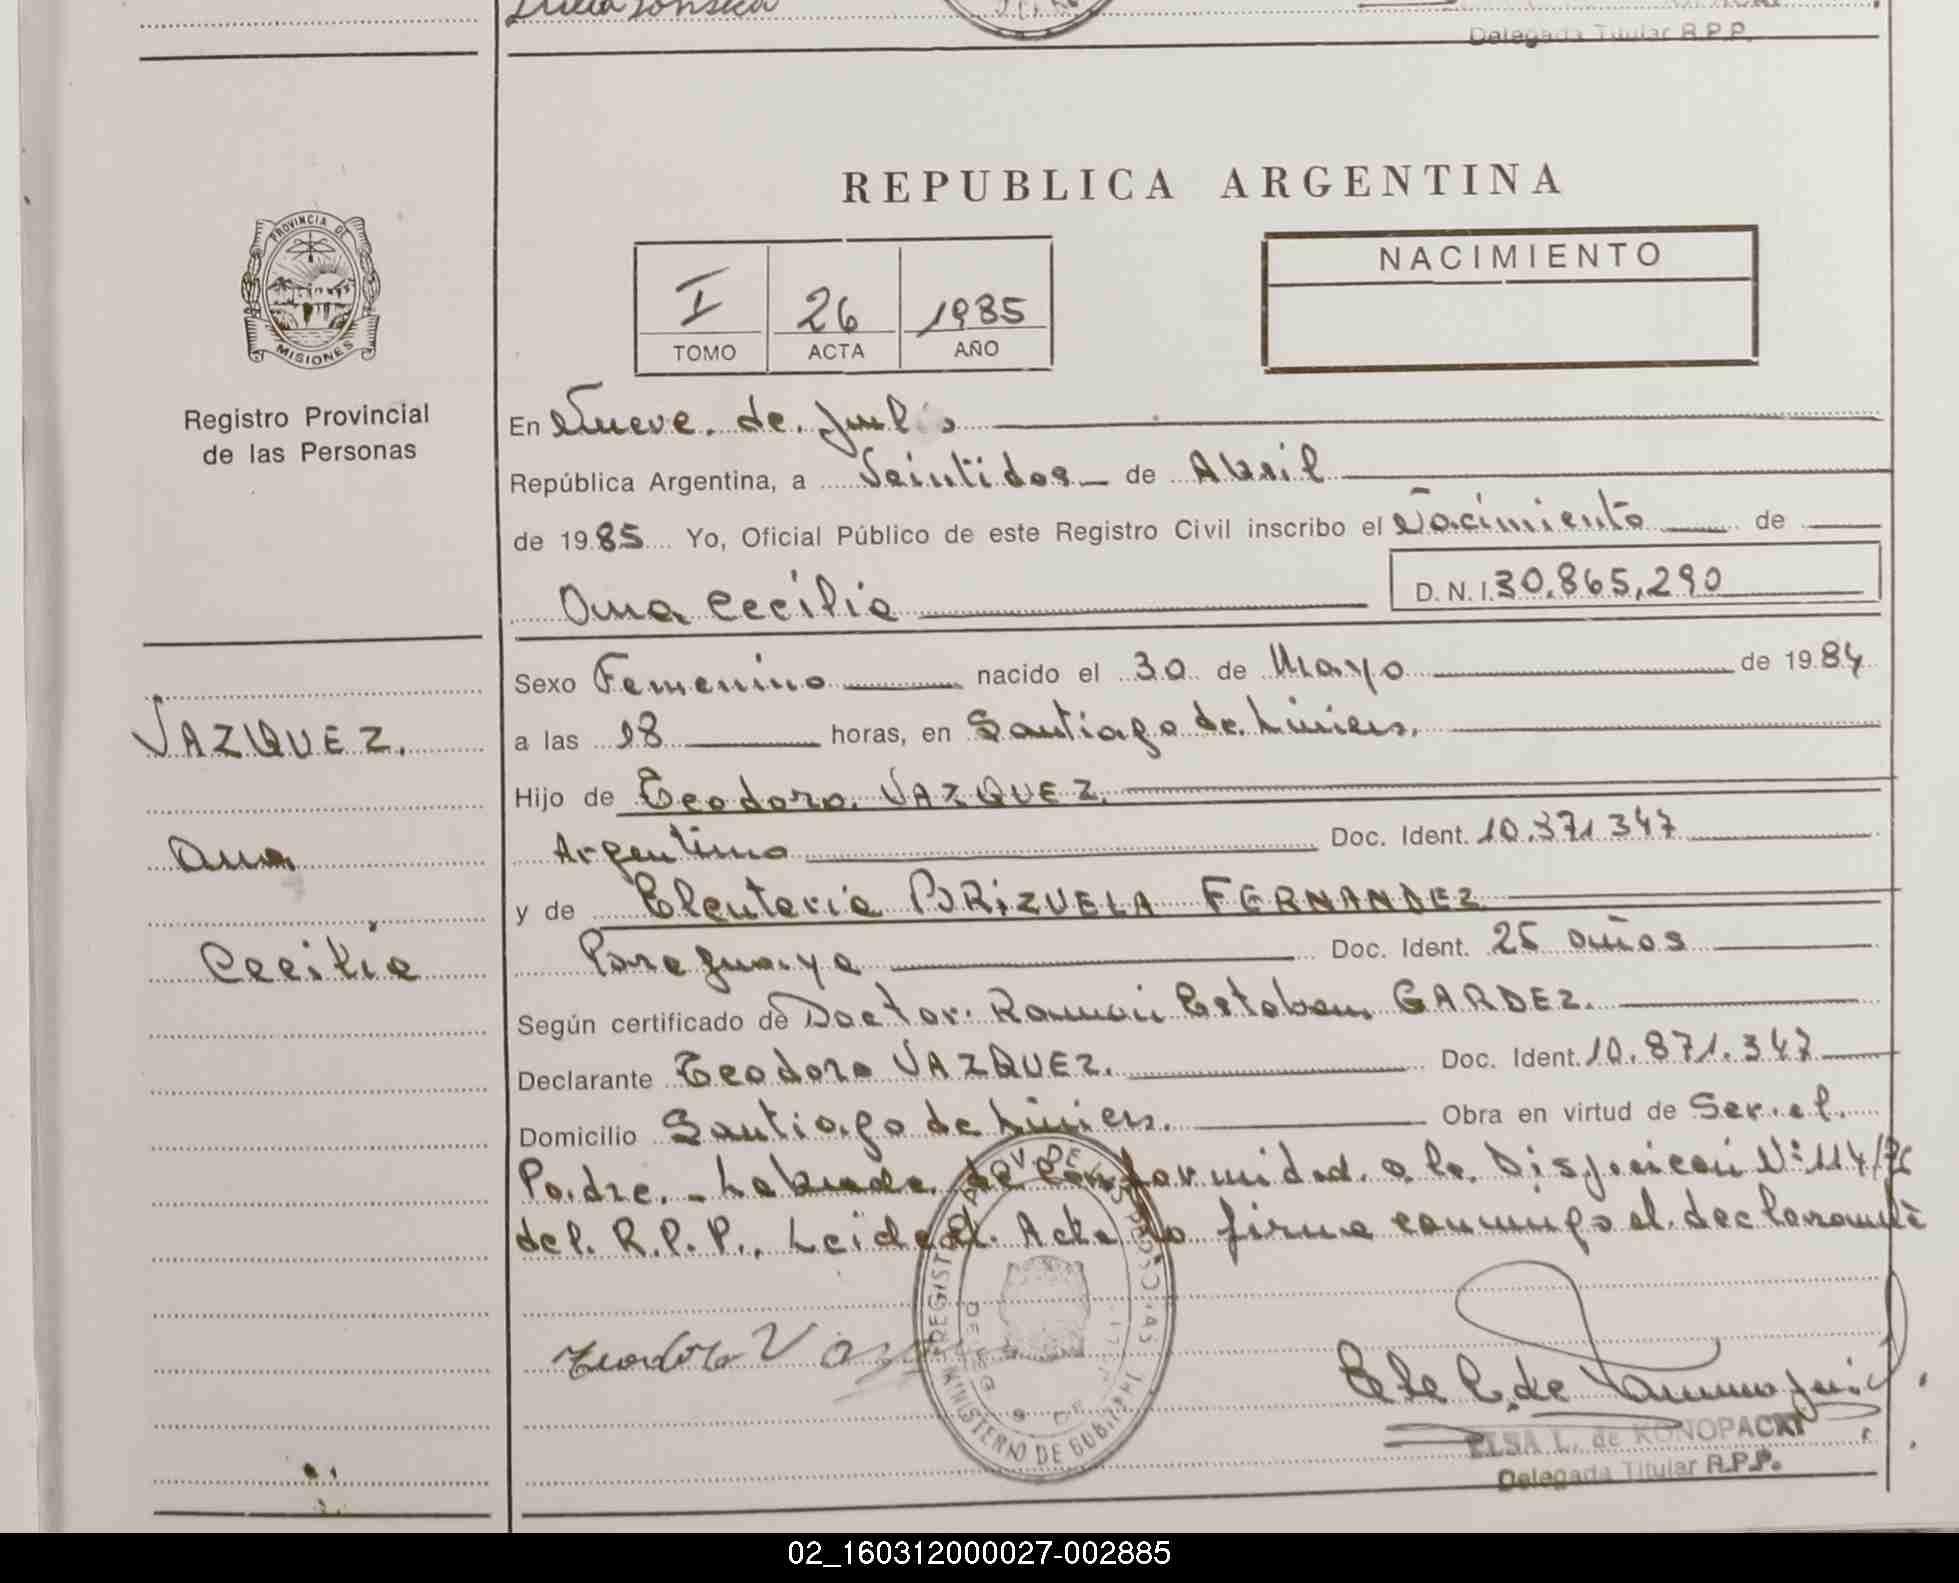 Delegada Titular R.P.P.
REPUBLICA ARGENTINA
PROVINCIA DE
MISIONES
Registro Provincial
de las Personas
I 26 1985
TOMO ACTA AÑO
NACIMIENTO
En Nueve de Julio
República Argentina, a Veintidos de Abril
de 1985 Yo, Oficial Público de este Registro Civil inscribo el Nacimiento de
Ana Cecilia D.N.I. 30.865,290
Sexo Femenino nacido el 30 de Mayo de 1984
VAZQUEZ.
a las 18 horas, en Santiago de Liniers.
Hijo de Teodoro VAZQUEZ.
Ana
Argentino Doc. Ident. 10.871.347
y de Eleuteria BRIZUELA FERNANDEZ
Cecilia
Paraguaya Doc. Ident. 25 años
Según certificado de Doctor Ramon Esteban GARDEZ.
Declarante Teodoro VAZQUEZ. Doc. Ident. 10.871.347
Domicilio Santiago de Liniers. Obra en virtud de Ser el
Padre. Labrada de conformidad a la Disposicion Nº 114/76
del R.P.P., Leida el Acta la firma conmigo el declarante
Teodoro
REGISTRO
MINISTERIO DE GOBIERNO
ELSA L. de KONOPACKI
Delegada Titular R.P.P.
02_160312000027-002885